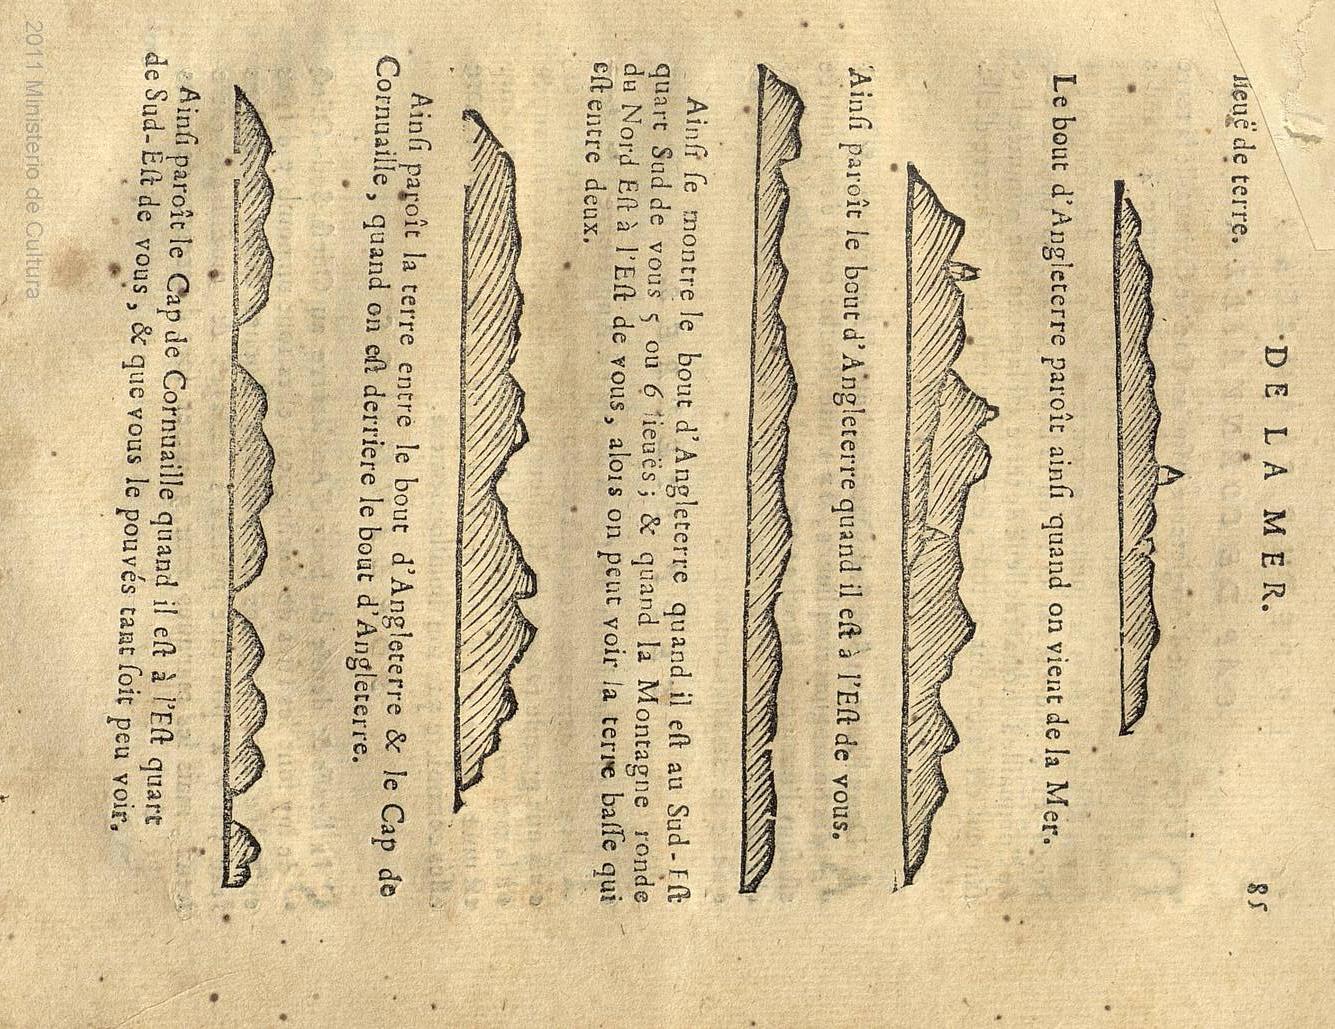 DE LA MER. 85
lieuë de terre.
Le bout d'Angleterre paroît ainſi quand on vient de la Mer.
Ainſi paroît le bout d'Angleterre quand il eſt à l'Eſt de vous.
Ainſi ſe montre le bout d'Angleterre quand il eſt au Sud-Eſt
quart Sud de vous 5 ou 6 lieuës; & quand la Montagne ronde
du Nord Eſt à l'Eſt de vous, alors on peut voir la terre baſſe qui
eſt entre deux.
Ainſi paroît la terre entre le bout d'Angleterre & le Cap de
Cornuaille, quand on eſt derriere le bout d'Angleterre.
Ainſi paroît le Cap de Cornuaille quand il eſt à l'Eſt quart
de Sud-Eſt de vous, & que vous le pouvés tant ſoit peu voir.
2011 Ministerio de Cultura